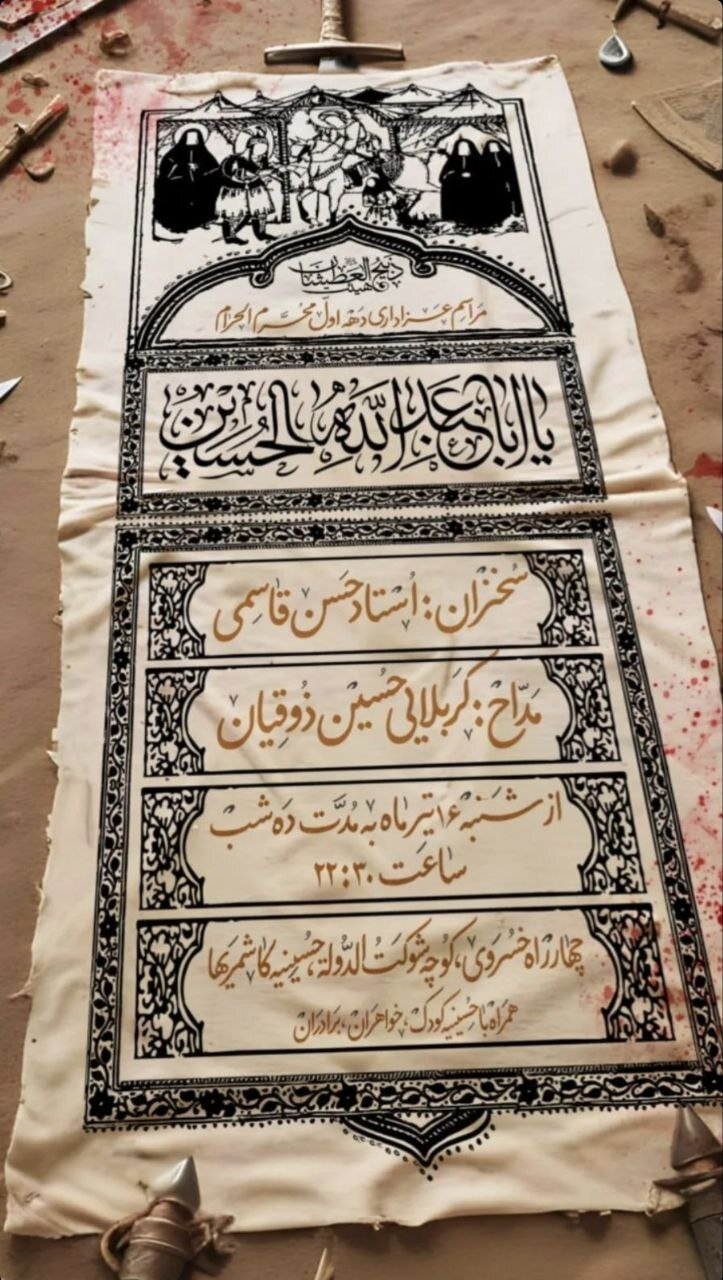 هیئت ذبیح العطشان
مراسم عزاداری دهه اول محرم الحرام
یا اباعبدالله الحسین
سخنران: استاد حسن قاسمی
مداح: کربلایی حسین ذوقیان
از شنبه ۱۶ تیر ماه به مدت ده شب
ساعت ۲۲:۳۰
چهارراه خسروی، کوچه شوکت الدولة، حسینیه کاشمریها
همراه با حسینیه کودک، خواهران، برادران